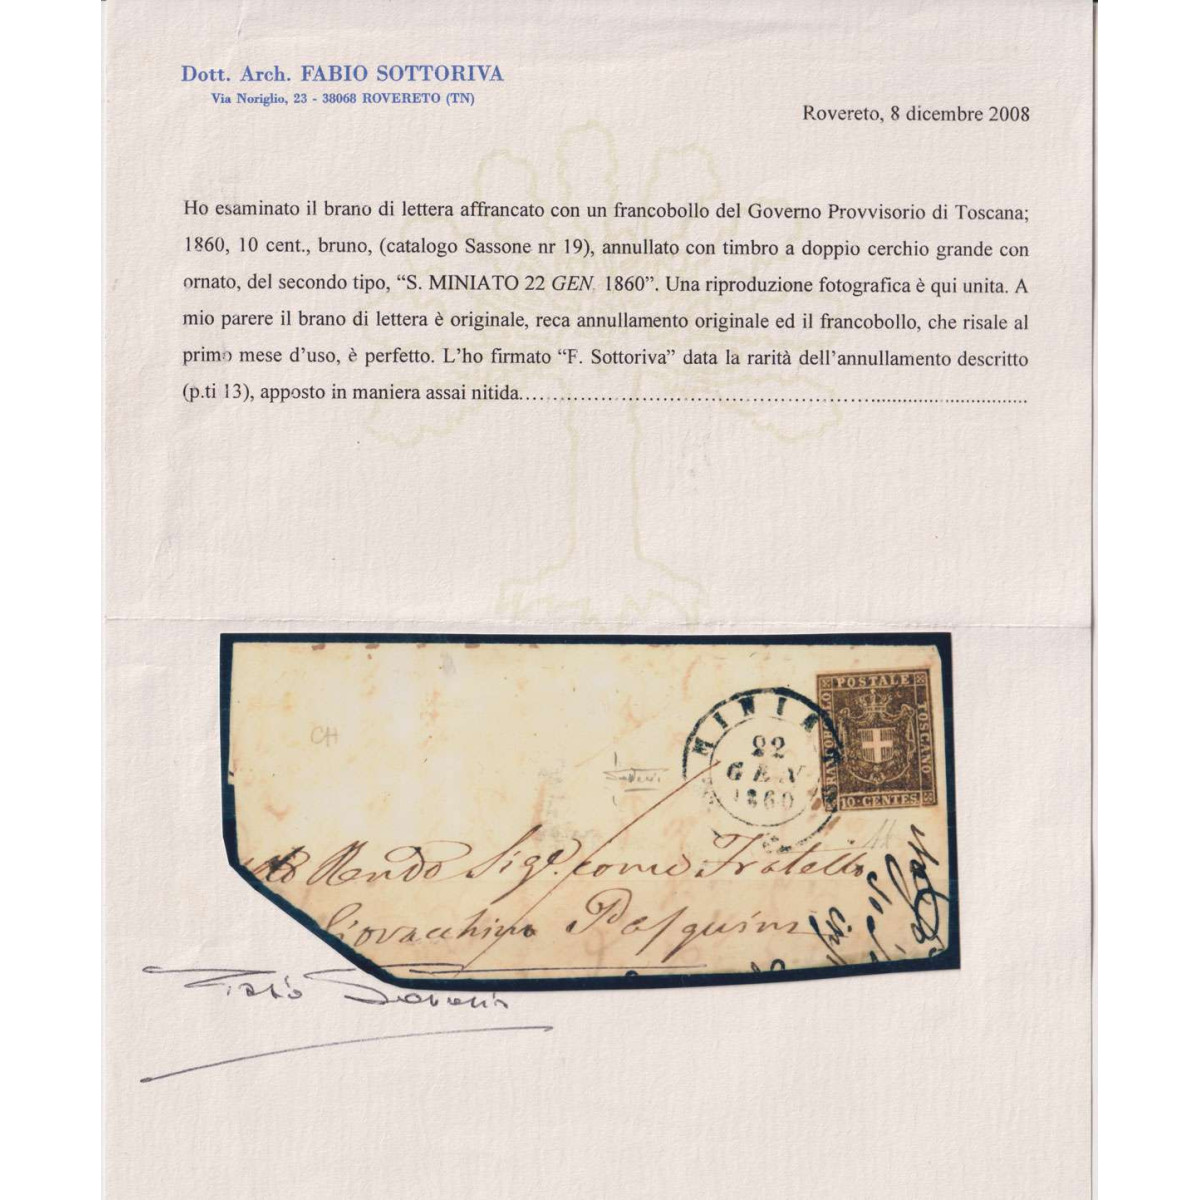 Dott. Arch. FABIO SOTTORIVA
Via Noriglio, 23 - 38068 ROVERETO (TN)
Rovereto, 8 dicembre 2008
Ho esaminato il brano di lettera affrancato con un francobollo del Governo Provvisorio di Toscana;
1860, 10 cent., bruno, (catalogo Sassone nr 19), annullato con timbro a doppio cerchio grande con
ornato, del secondo tipo, “S. MINIATO 22 GEN. 1860”. Una riproduzione fotografica è qui unita. A
mio parere il brano di lettera è originale, reca annullamento originale ed il francobollo, che risale al
primo mese d’uso, è perfetto. L’ho firmato “F. Sottoriva” data la rarità dell’annullamento descritto
(p.ti 13), apposto in maniera assai nitida......................................................................................
POSTALE
TOSCANO
10 CENTES
MINIA
22
GEN
1860
CH
Rendo Sigr. come Fratello
Giovacchino Pasquini